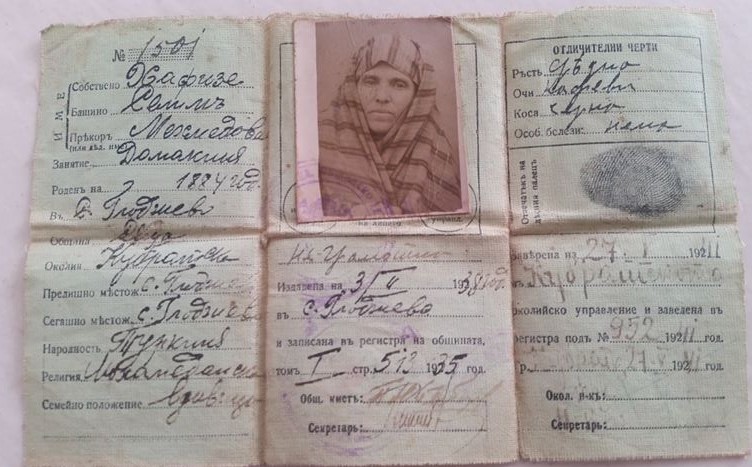 № 1501
ИМЕ
Собствено Хафизе
Бащино Селимъ
Прѣкоръ Мехмедова
(или сѣм. им.)
Занятие Домакиня
Роденъ на 1884 год.
Въ с. Глоджево
Община
Околия Кубратска
Прелишно мѣстож. с. Глоджево
Сегашно мѣстож. с. Глоджево
Народность Туркиня
Религия Мохамеданска
Семейно положение вдовица
Издадена на 3/II 1938 год.
въ с. Глоджево
и записана въ регистра на общината,
томъ I стр. 1935 год.
Общ. кметъ:
Секретарь:
ОТЛИЧИТЕЛНИ ЧЕРТИ
Ръсть срѣдно
Очи кафеви
Коса черна
Особ. белези: нема
Отпечатъкъ на
дѣсния палецъ
Заверена на 27
Кубратското
околийско управление и заведена въ
регистра подъ № 952 год.
Окол. н-къ:
Секретарь: